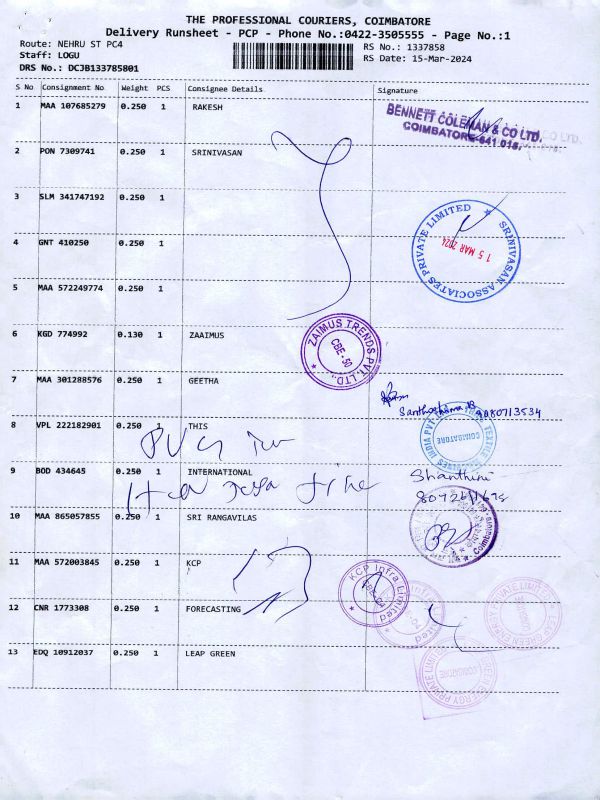 THE PROFESSIONAL COURIERS, COIMBATORE
Delivery Runsheet - PCP - Phone No.:0422-3505555 - Page No.:1
Route: NEHRU ST PC4 RS No.: 1337858
Staff: LOGU RS Date: 15-Mar-2024
DRS No.: DCJB133785801
S No Consignment No Weight PCS Consignee Details Signature
1 MAA 107685279 0.250 1 RAKESH
BENNETT COLEMAN & CO LTD.
COIMBATORE-641 018.
2 PON 7309741 0.250 1 SRINIVASAN
3 SLM 341747192 0.250 1
SRINIVASAN ASSOCIATES PRIVATE LIMITED
15 MAR 2024
4 GNT 410250 0.250 1
5 MAA 572249774 0.250 1
6 KGD 774992 0.130 1 ZAAIMUS
ZAIMUS TRENDS PVT. LTD.
CBE-50
7 MAA 301288576 0.250 1 GEETHA
9080713534
8 VPL 222182901 0.250 1 THIS
COIMBATORE
9 BOD 434645 0.250 1 INTERNATIONAL
Shanthini
10 MAA 865057855 0.250 1 SRI RANGAVILAS
Coimbatore
11 MAA 572003845 0.250 1 KCP
KCP Infra Limited
12 CNR 1773308 0.250 1 FORECASTING
LEAP GREEN ENERGY PRIVATE LIMITED
13 EDQ 10912037 0.250 1 LEAP GREEN
ENERGY PRIVATE LIMITED
COIMBATORE